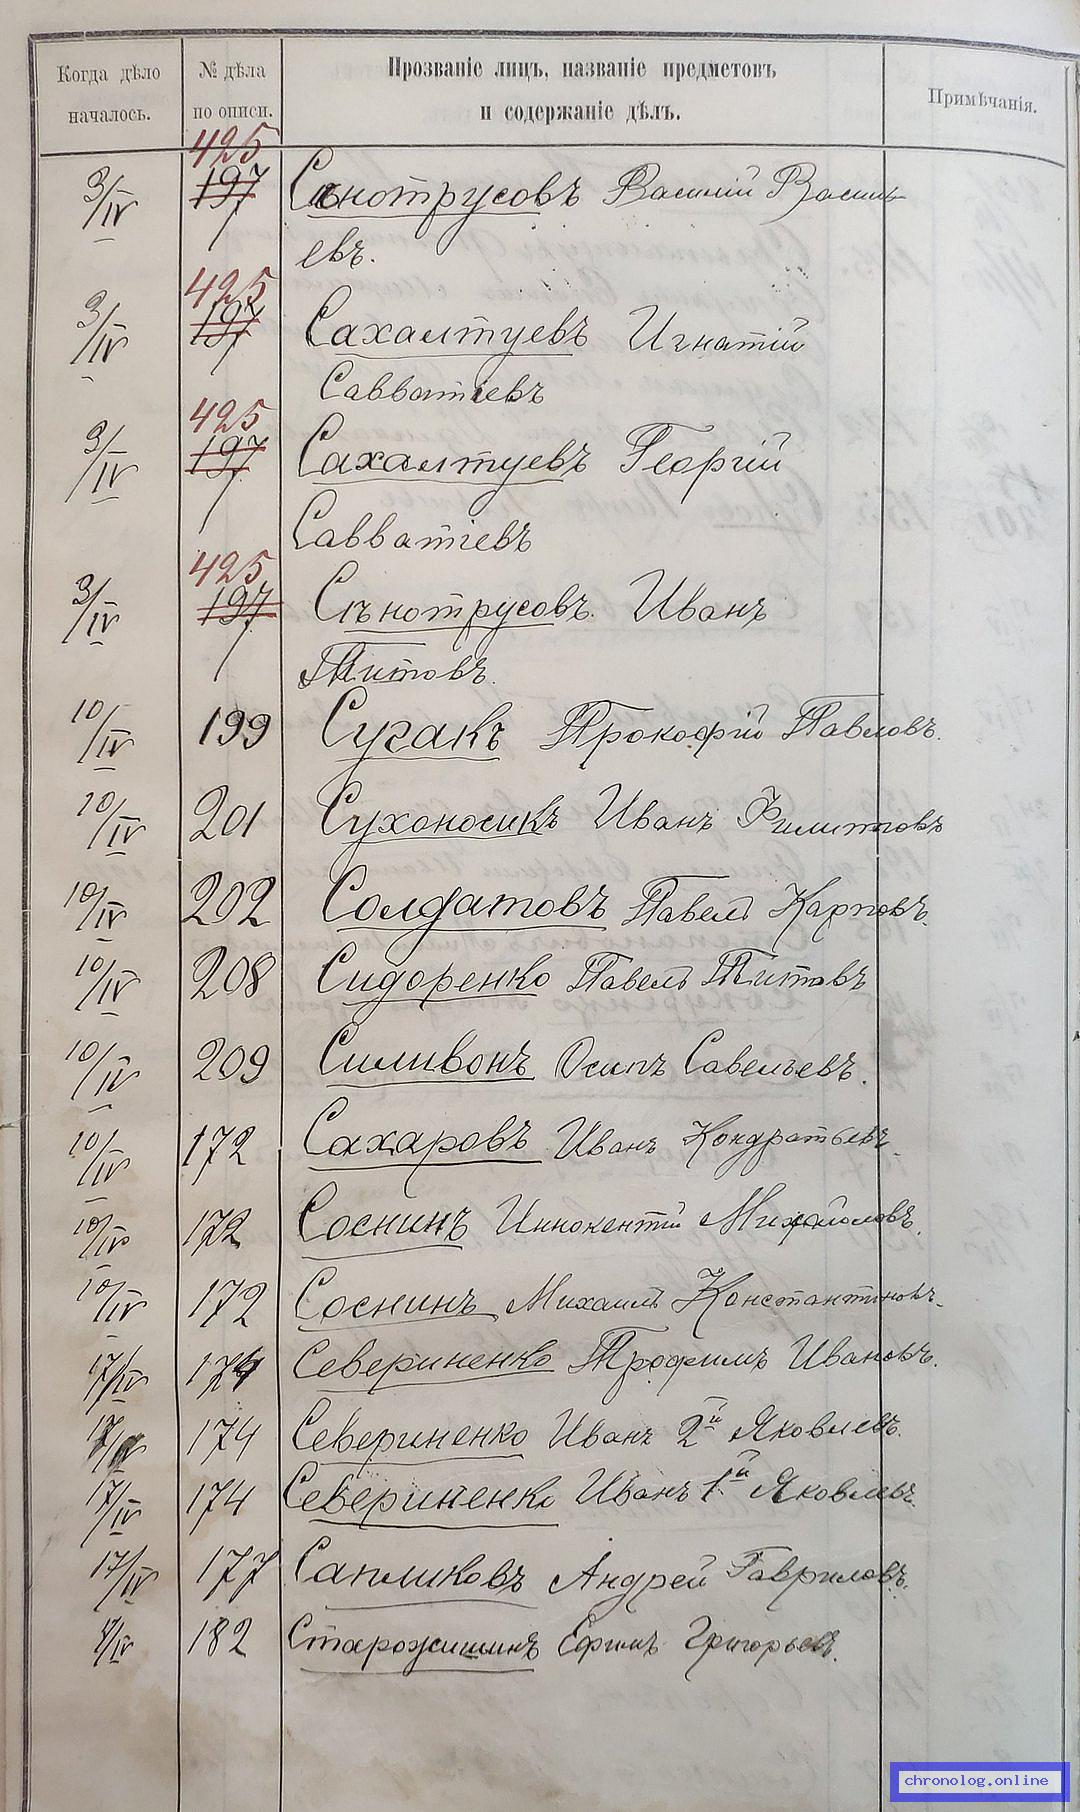 Когда дѣло началось.
№ дѣла по описи.
Прозваніе лицъ, названіе предметовъ
и содержаніе дѣлъ.
Примѣчанія.
425
3/IV 197 Сѣнотрусовъ Василій Василь-
евъ.
425
3/IV 197 Сахалтуевъ Игнатій
Савватіевъ
425
3/IV 197 Сахалтуевъ Георгій
Савватіевъ
425
3/IV 197 Сѣнотрусовъ Иванъ
Титовъ.
10/IV 199 Сугакъ Прокофій Павловъ.
10/IV 201 Сухоносикъ Иванъ Филипповъ
10/IV 202 Солдатовъ Павелъ Карповъ.
10/IV 208 Сидоренко Павелъ Титовъ
10/IV 209 Силивонъ Осипъ Савельевъ.
10/IV 172 Сахаровъ Иванъ Кондратьевъ.
10/IV 172 Соснинъ Иннокентій Михайловъ.
10/IV 172 Соснинъ Михаилъ Константиновъ.
17/IV 174 Севериненко Трофимъ Ивановъ.
174 Севериненко Иванъ 2й Яковлевъ.
17/IV 174 Севериненко Иванъ 1й Яковлевъ.
17/IV 177 Сапликовъ Андрей Гавриловъ.
182 Старожилинъ Ефимъ Григорьевъ.
chronolog.online